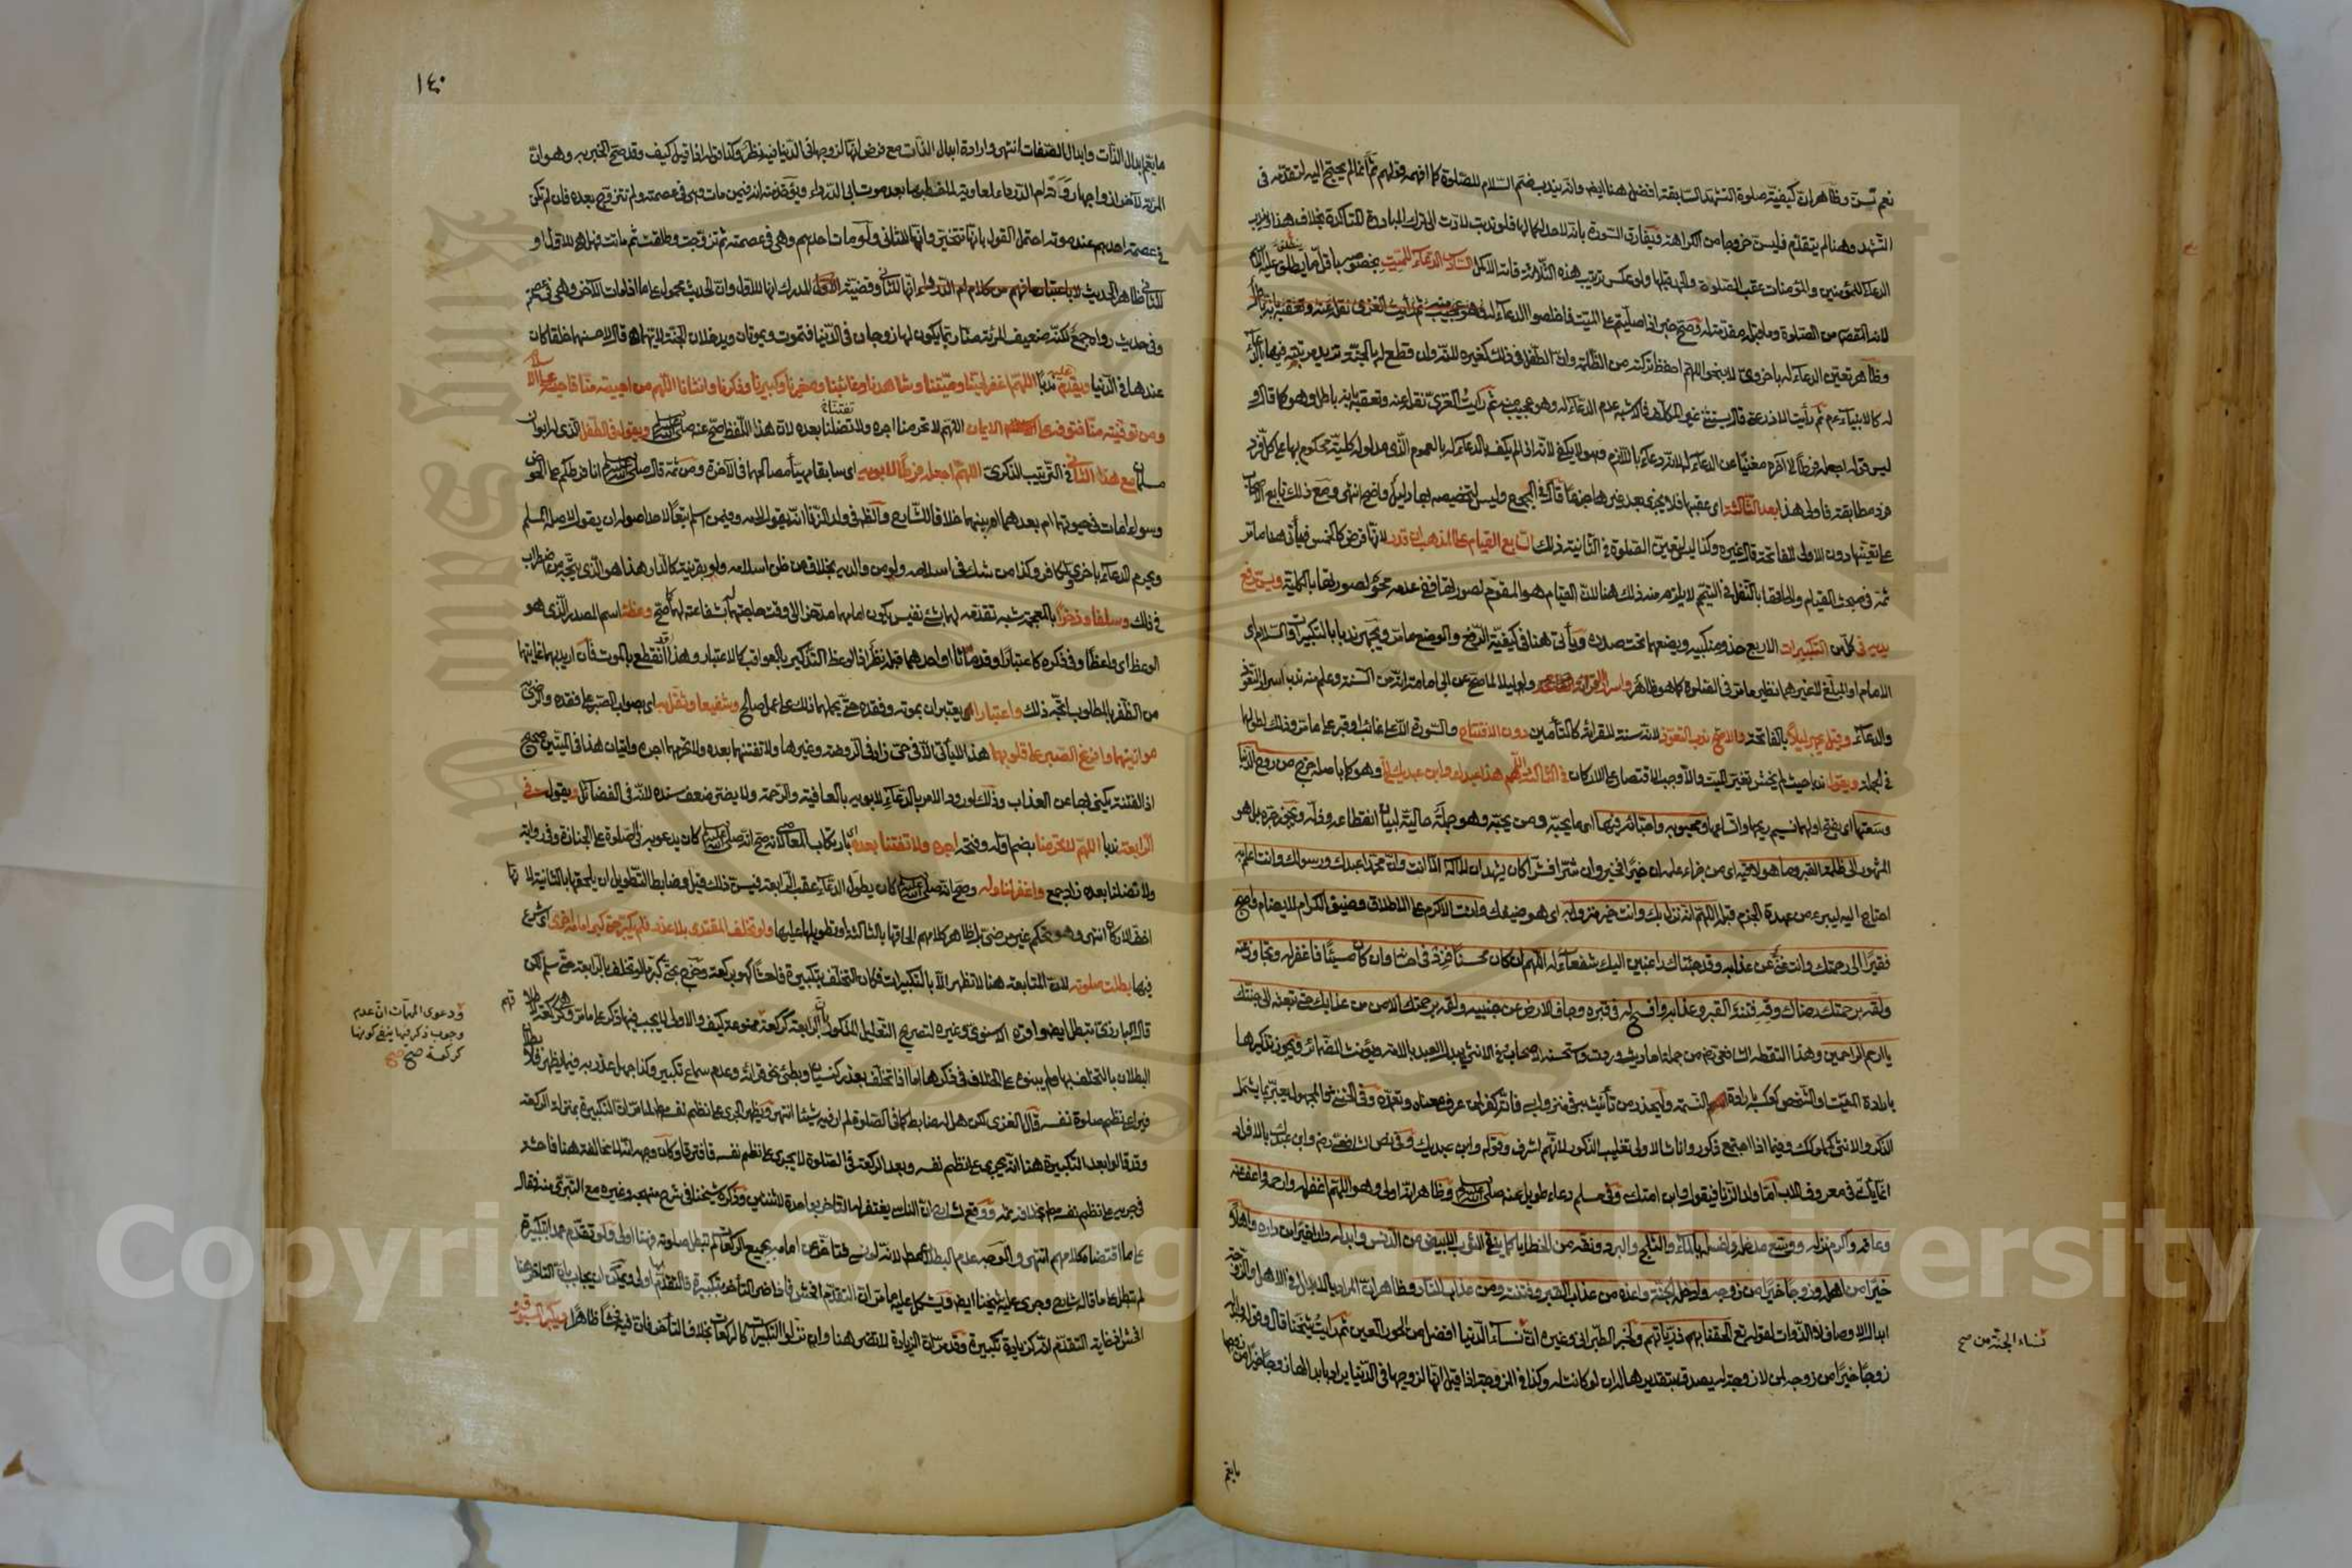 نعم تسن وظاهر ان كيفية صلوة التشهد السابقة افضل هنا ايضا وانه يندب ضم السلام للصلوة كما افهمه قولهم ثم انما لم يحتج اليه لتقدمه في
التشهد وهنا لم يتقدم فليس خروجا من الكراهة ويفارق السورة بانه لا حد لكمالها فلو ندبت لادت الى ترك المبادرة المتاكدة بخلاف هذا ويندب
الدعاء للمؤمنين والمؤمنات عقب الصلوة والحمد قبلها ولو عكس ترتيب هذه الثلاثة فاته الاكمل السادس الدعاء للميت بخصوصه باقل ما ينطلق عليه الاسم
لانه المقصود من الصلوة وما قبله مقدمة له وصح خبر اذا صليتم على الميت فاخلصوا له الدعاء
وظاهر تعين الدعاء له باخروي لا بنحو اللهم احفظ تركته من الظلمة وان الطفل في ذلك كغيره لانه وان قطع له بالجنة تزيد مرتبته فيها بالدعاء
له كالانبياء ثم رأيت الاذرعي قال يستثنى غير المكلف فالاشبه عدم الدعاء له وهو عجيب منه ثم رأيت الغزي نقله عنه وتعقبه بانه باطل وهو كما قال
ليس قوله اجعله فرطا الى آخره مغنيا عن الدعاء له لانه دعاء باللازم وهو لا يكفي لانه اذا لم يكف الدعاء له بالعموم الذي مدلوله كلية محكوم بها على كل فرد
فرد مطابقة فاولى هذا بعد الثالثة اى عقبها فلا يجزئ بعد غيرها جزما قال في المجموع وليس لتخصيصه بها دليل واضح انتهى ومع ذلك تابع الاصحاب
على تعينها دون الاولى للفاتحة قال غيره وكذا ليس لتعين الصلوة في الثانية ذلك السابع القيام على المذهب ان قدر لانها فرض كالخمس فيأتي هنا ما مر
ثمة في مبحث القيام والحاقها بالنفل في التيمم لا يلزم منه ذلك هنا لان القيام هو المقوم لصورتها ففي عدمه محو لصورتها بالكلية ويسن رفع
يديه في كل من التكبيرات الاربع حذو منكبيه ويضعهما تحت صدره ويأتي هنا في كيفية الرفع والوضع ما مر ويجهر ندبا بالتكبيرات والسلام اى
الامام او المبلغ لا غيرهما نظير ما مر في الصلوة كما هو ظاهر واسرار القراءة ولو ليلا لما صح عن ابي امامة انه من السنة وعلم منه ندب اسرار التعوذ
والدعاء وقيل يجهر ليلا بالفاتحة والاصح ندب التعوذ لانه سنة للقراءة كالتأمين دون الافتتاح والسورة الا على غائب او قبر على ما مر وذلك لطولهما
في الجملة ويقول ندبا حيث لم يخش تغير الميت والا وجب الاقتصار على الاركان في الثالثة اللهم هذا عبدك وابن عبديك الى وهو كما باصله خرج من روح الدنيا
وسعتها اى بفتح اولهما نسيم ريحها واتساعها ومحبوبه واحبائه فيها اى ما يحبه ومن يحبه وهو جملة حالية لبيان انقطاعه وذله ويجوز جره بل هو
المشهور الى ظلمة القبر وما هو لاقيه اى من جزاء عمله ان خيرا فخير وان شرا فشر كان يشهد ان لا اله الا انت وان محمدا عبدك ورسولك وانت اعلم به
احتاج اليه ليبرء من عهدة الجزم قبله اللهم انه نزل بك وانت خير منزول به اى هو ضيفك وانت الاكرم على الاطلاق وضيف الكرام لا يضام واصبح
فقيرا الى رحمتك وانت غني عن عذابه وقد جئناك راغبين اليك شفعاء له اللهم ان كان محسنا فزد في احسانه وان كان مسيئا فاغفر له وتجاوز عنه
ولقه برحمتك رضاك وقه فتنة القبر وعذابه وافسح له في قبره وجاف الارض عن جنبيه ولقه برحمتك الامن من عذابك حتى تبعثه الى جنتك
يا ارحم الراحمين وهذا التقطه الشافعي رضي من جملة احاديث وردت واستحسنه الاصحاب وفي الانثى يبدل العبد بالامة ويؤنث الضمائر ويجوز تذكيرها
بارادة الميت او الشخص
الذكر والانثى كمملوكك وفيما اذا اجتمع ذكور واناث الاولى تغليب الذكور لانهم اشرف وقوله وابن عبديك وفي نص الشافعي رضي وابن عبدك بالافراد
انما يأتي في معروف الاب اما ولد الزنا فيقول فيه ابن امتك وفي مسلم دعاء طويل عنه صلى الله عليه وسلم وظاهر انه اولى وهو اللهم اغفر له وارحمه واعف عنه
وعافه واكرم نزله ووسع مدخله واغسله بالماء والثلج والبرد ونقه من الخطايا كما ينقى الثوب الابيض من الدنس وابدله دارا خيرا من داره واهلا
خيرا من اهله وزوجا خيرا من زوجه وادخله الجنة واعذه من عذاب القبر وفتنته ومن عذاب النار وظاهر ان المراد بالابدال في الاهل والزوجة
ابدال الاوصاف لا الذوات لقوله تع الحقنا بهم ذرياتهم ولخبر الطبراني وغيره ان نساء الدنيا افضل من الحور العين ثم رأيت شيخنا قال وقوله وابدله
زوجا خيرا من زوجه لمن لا زوجة له يصدق بتقديرها له ان لو كانت له وكذا في الزوجة اذا قيل انها لزوجها في الدنيا يراد بابدالها زوجا خيرا من زوجها
نساء الجنة من صح
ما يعم
١٤٠
ما يعم ابدال الذات وابدال الصفات انتهى وارادة ابدال الذات مع فرض انها لزوجها في الدنيا فيه نظر وكذا قوله اذا قيل كيف وقد صح الخبر به وهو ان
المرأة لآخر ازواجها روته ام الدرداء لمعاوية لما خطبها بعد موت ابي الدرداء ويؤخذ منه انه فيمن مات وهي في عصمته ولم تتزوج بعده فان لم تكن
في عصمة احدهم عند موته احتمل القول بانها تخير وانها للثاني ولو مات احدهم وهي في عصمته ثم تزوجت وطلقت ثم ماتت فهل هي للاول او
للثاني ظاهر الحديث انها للثاني وقضية المدرك انها للاول وان الحديث محمول على ما اذا مات الآخر وهي في عصمته
وفي حديث رواه جمع لكنه ضعيف المرأة منا ربما يكون لها زوجان في الدنيا فتموت ويموتان ويدخلان الجنة لايهما هي قال لاحسنهما خلقا كان
عندها في الدنيا ويقدم عليه ندبا اللهم اغفر لحينا وميتنا وشاهدنا وغائبنا وصغيرنا وكبيرنا وذكرنا وانثانا اللهم من احييته منا فاحيه على الاسلام
ومن توفيته منا فتوفه على الايمان اللهم لا تحرمنا اجره ولا تضلنا بعده لان هذا اللفظ صح عنه صلى الله عليه وسلم ويقول في الطفل الذي له ابوان
مسلمان مع هذا الثاني في الترتيب الذكري اللهم اجعله فرطا لابويه اى سابقا مهيأ مصالحهما في الآخرة ومن ثمة قال صلى الله عليه وسلم انا فرطكم على الحوض
وسواء مات في حيوتهما ام بعدهما ام بينهما خلافا للشارح والظاهر في ولد الزنا انه يقول لامه وفيمن اسلم تبعا لاحد اصوله ان يقول لاصله المسلم
ويحرم الدعاء باخروي لكافر وكذا من شك في اسلامه ولو من والديه بخلاف من ظن اسلامه ولو بقرينة كالدار هذا هو الذي يتجه من اضطراب
في ذلك وسلفا وذخرا بالمعجمة شبه تقدمه لهما بشئ نفيس يكون امامهما مدخرا الى وقت حاجتهما له بشفاعته لهما كما صح وعظة اسم المصدر الذي هو
الوعظ اى واعظا وفي ذكره كاعتبارا وقد ماتا او احدهما قبله نظر اذ الوعظ التذكير بالعواقب كالاعتبار وهذا قد انقطع بالموت فان اريد بهما غايتهما
من الظفر بالمطلوب اتجه ذلك واعتبارا اى يعتبران بموته وفقده حتى يحملهما ذلك على عمل صالح وشفيعا وثقل به اى بصواب الصبر على فقده والرضى
موازينهما وافرغ الصبر على قلوبهما هذا لا يأتي الا في حي زاد في الروضة وغيرها ولا تفتنهما بعده ولا تحرمهما اجره واتيان هذا في الميتين صحيح
اذ الفتنة يكنى بها عن العذاب وذلك لورود الامر بالدعاء لابويه بالعافية والرحمة ولا يضر ضعف سنده لانه في الفضائل ويقول في
الرابعة ندبا اللهم لا تحرمنا بضم اوله وفتحه اجره ولا تفتنا بعده اى بارتكاب المعاصي لانه صح انه صلى الله عليه وسلم كان يدعو به في الصلوة على الجنازة وفي رواية
ولا تضلنا بعده زاد جمع واغفر لنا وله وصح انه صلى الله عليه وسلم كان يطول الدعاء عقب الرابعة فيسن ذلك قيل وضابط التطويل ان يلحقها بالثانية لانها
اخف الاركان انتهى وهو تحكم غير مرضي بل ظاهر كلامهم الحاقها بالثالثة او تطويلها عليها ولو تخلف المقتدي بلا عذر فلم يكبر حتى كبر امامه اخرى اى شرع
فيها بطلت صلوته لان المتابعة هنا لا تظهر الا بالتكبيرات فكان التخلف بتكبيرة فاحشا كهو بركعة وخرج بحتى كبر ما لو تخلف بالرابعة حتى سلم لكن
قال البارزي تبطل ايضا واقره الاسنوي وغيره لتصريح التعليل المذكور بان الرابعة كركعة ممنوع كيف والاولى لا يجب فيها ذكر على ما مر
البطلان بالتخلف بها ولم يبنوه على الخلاف في ذكرها اما اذا تخلف بعذر كنسيان وبطئ نحو قراءة وعدم سماع تكبير وكذا جهل عذر به فيما يظهر فلا
فيراعي نظم صلوة نفسه قال الغزي لكن هل له ضابط كما في الصلوة لم ار فيه شيئا انتهى ويظهر الجري على نظم نفسه مطلقا لما مر ان التكبيرة بمنزلة الركعة
وقد قالوا بعد التكبيرة هنا انه يجري على نظم نفسه وبعد الركعة في الصلوة لا يجري على نظم نفسه فافترقا وكان وجهه ان المخالفة هنا فاحشة
في جريه على نظم نفسه مطلقا بخلافه ثمة ووقع لشارح ان الناس يغتفر له التاخر بواحدة لا ثنتين وذكره شيخنا في شرح منهجه وغيره مع التبري منه فقال
على ما اقتضاه كلامهم انتهى والوجه عدم البطلان مطلقا لانه لو نسي فتأخر عن امامه بجميع الركعات لم تبطل صلوته فهنا اولى ولو تقدم عمدا بتكبيرة
لم تبطل على ما قاله شارح وجرى عليه شيخنا ايضا ويشكل عليه ما مر ان التقدم افحش فاذا ضر التأخر بتكبيرة فالتقدم بها اولى ويمكن ان يجاب بان التاخر هنا
افحش اذ غاية التقدم انه كزيادة تكبيرة وقد مر ان الزيادة لا تضر هنا وان نزلوا التكبيرات كالركعات بخلاف التأخر فان فيه فحشا ظاهرا ويكبر المسبوق
ودعوى المهمات ان عدم
وجوب ذكر فيها ينفي كونها
كركعة صح
Copyright © King Saud University